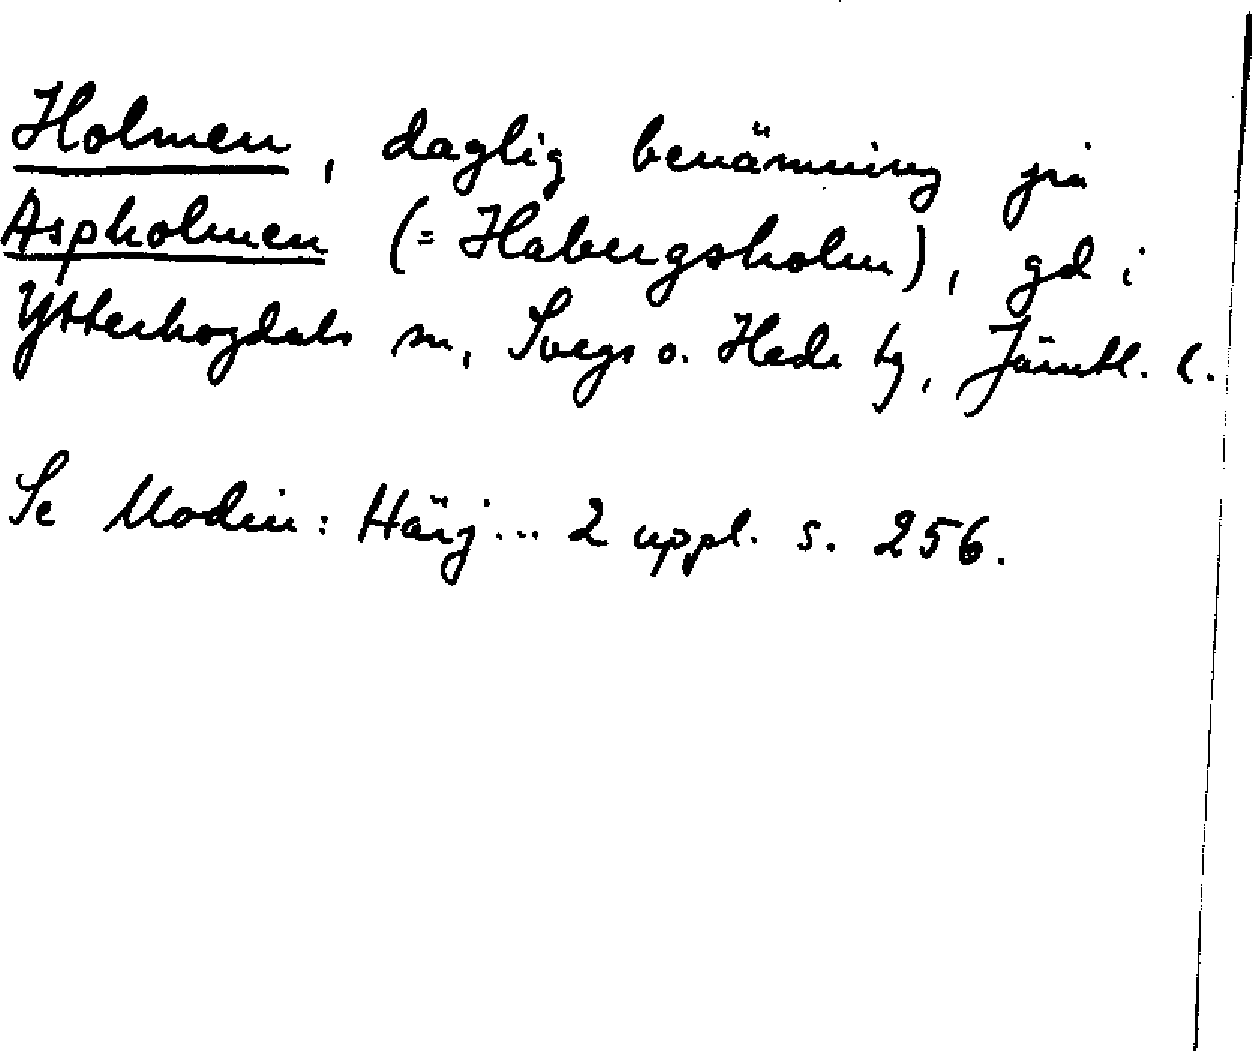 Holmen, daglig benämning på
Aspholmen (= Habergsholm), gd i
Ytterhogdals sn, Svegs o. Hede tg, Jämtl. l.
Se Modin: Härj... 2 uppl. s. 256.